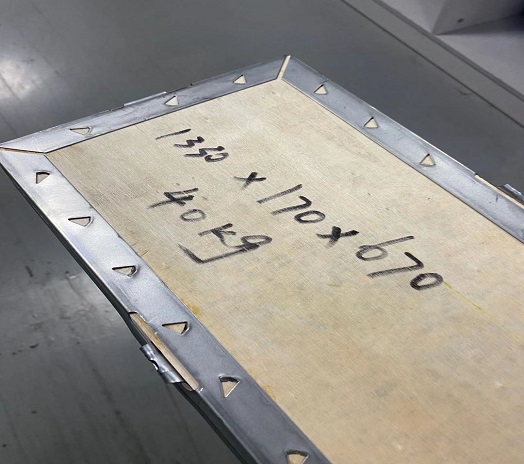 1350 x 170 x 670
40kg